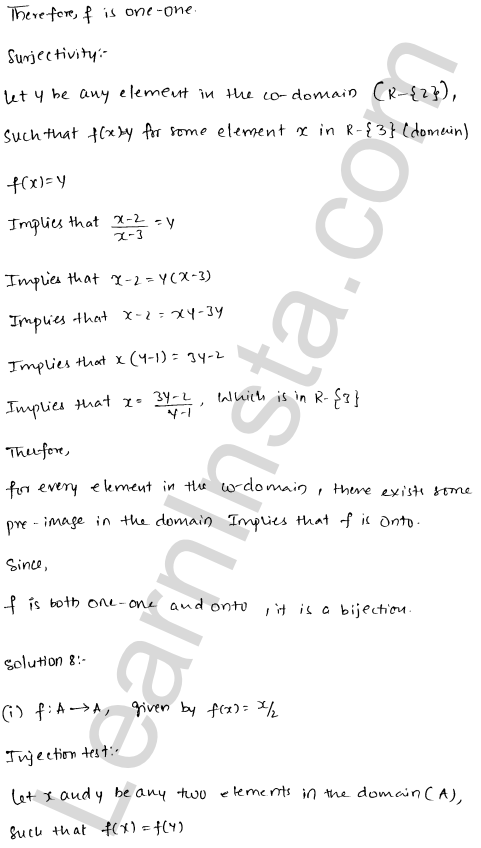 Therefore, f is one-one.
Surjectivity:-
Let y be any element in the co-domain (R-{2}),
Such that f(x)=y for some element x in R-{3} (domain)
f(x)=y
Implies that x-2/x-3 = y
Implies that x-2 = y(x-3)
Implies that x-2 = xy-3y
Implies that x(y-1) = 3y-2
Implies that x = 3y-2/y-1, Which is in R-{3}
Therefore,
for every element in the co-domain, there exists some
pre-image in the domain Implies that f is Onto.
Since,
f is both one-one and onto, it is a bijection.
Solution 8:-
(i) f: A→A, given by f(x) = x/2
Injection test:-
Let x and y be any two elements in the domain (A),
Such that f(x) = f(y)
LearnInsta.com